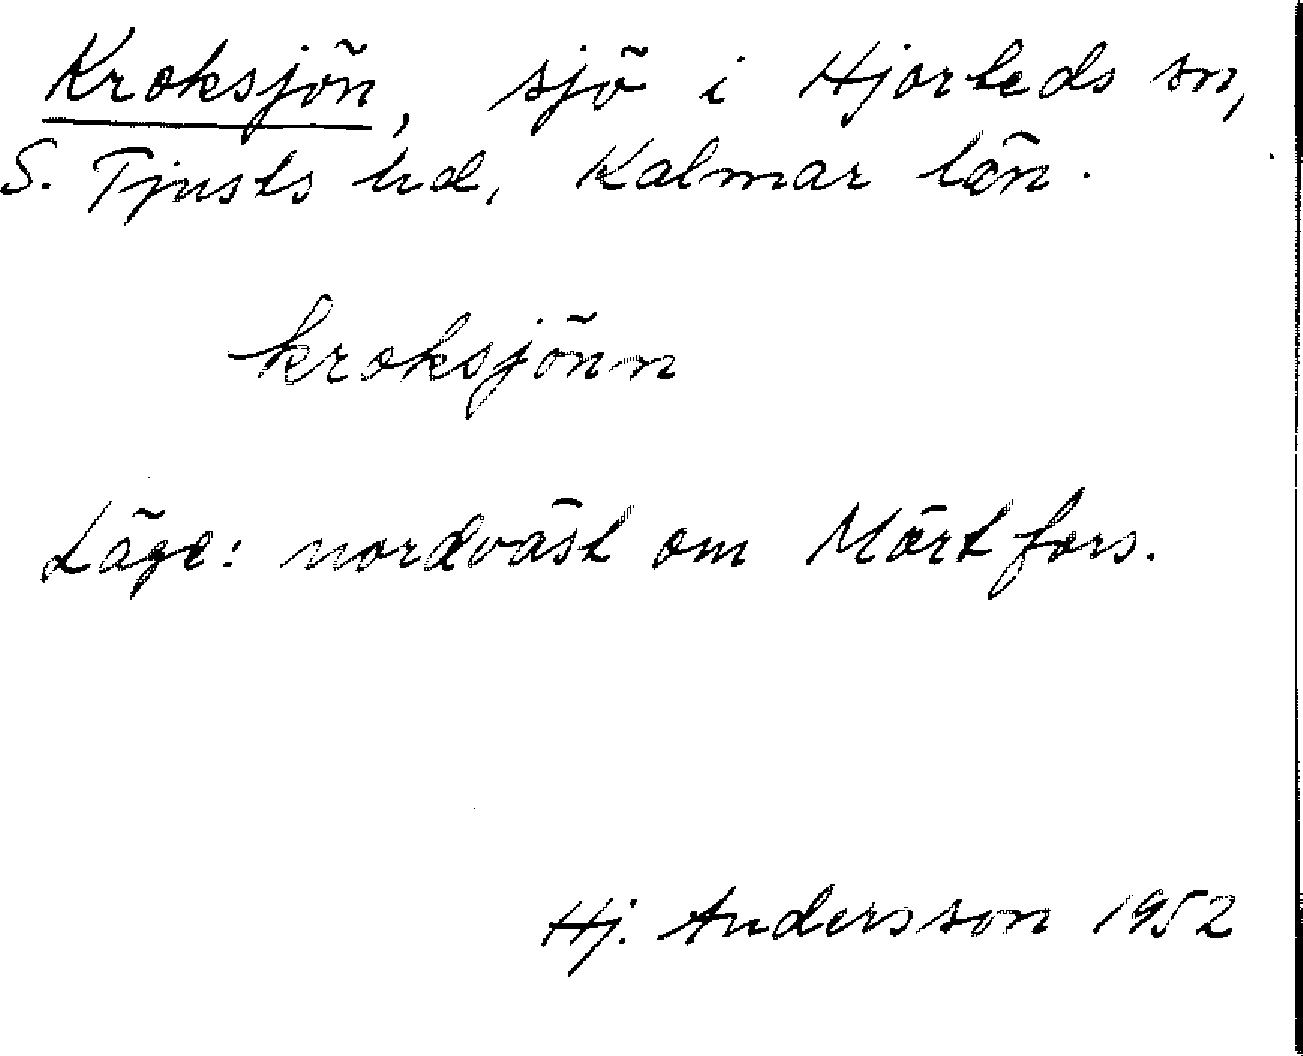 Kroksjön, sjö i Hjorteds sn,
S. Tjusts hd, Kalmar län.
kroksjönn
Läge: nordväst om Mörtfors.
Hj. Andersson 1952